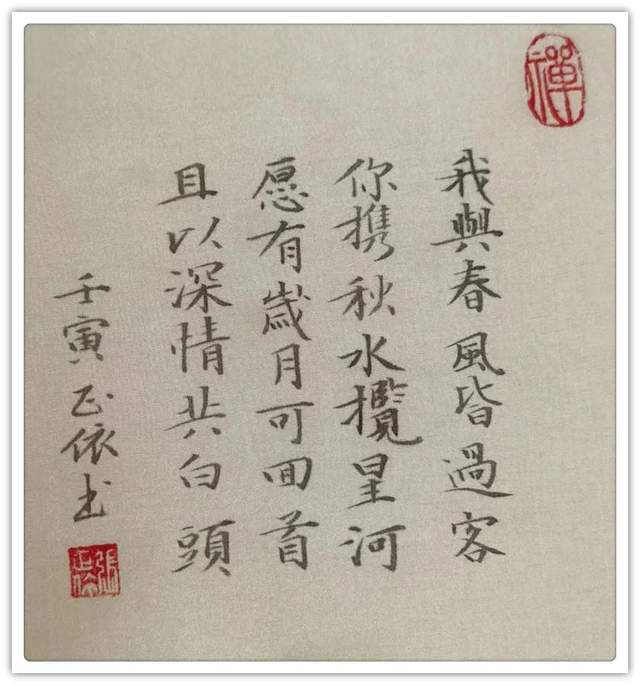 禪
我與春風皆過客
你攜秋水攬星河
愿有歲月可回首
且以深情共白頭
壬寅正依书